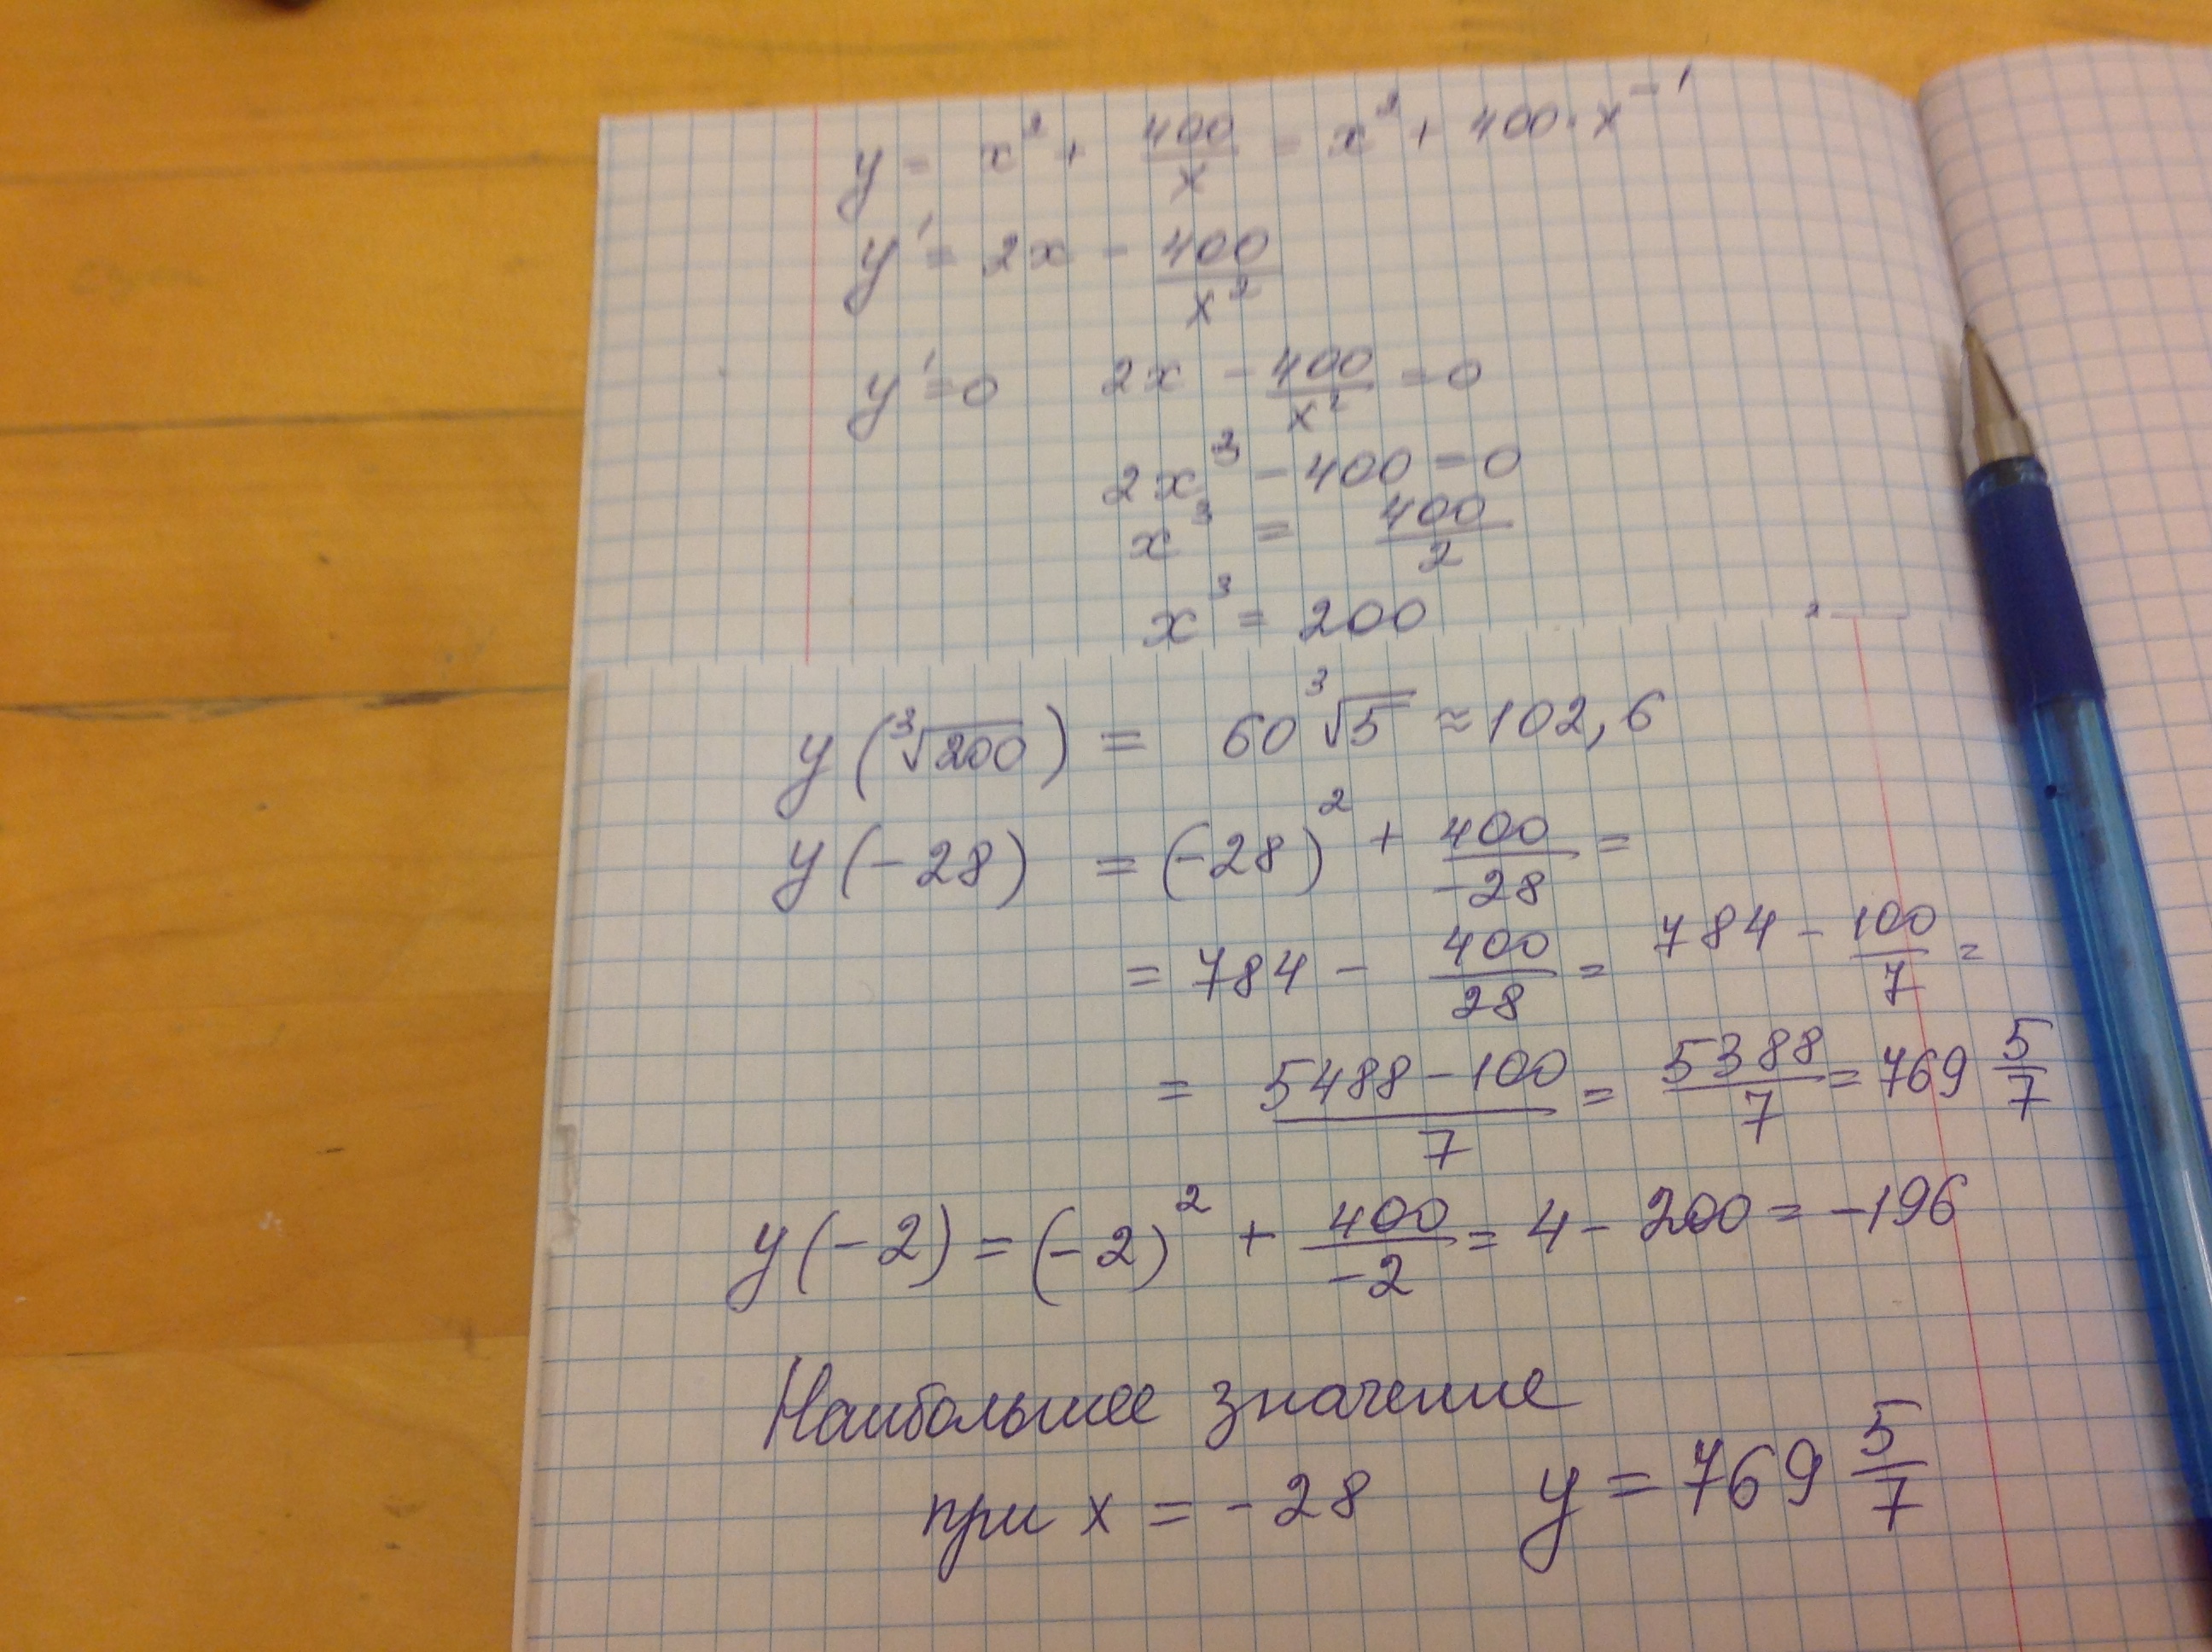 y = x² + 400/x = x² + 400·x⁻¹
y' = 2x - 400/x²
y' = 0 2x - 400/x² = 0
2x³ - 400 = 0
x³ = 400/2
x³ = 200
y(³√200) = 60 ³√5 ≈ 102,6
y(-28) = (-28)² + 400/-28 =
= 784 - 400/28 = 784 - 100/7 =
= 5488-100/7 = 5388/7 = 769 5/7
y(-2) = (-2)² + 400/-2 = 4 - 200 = -196
Наибольшее значение
при x = -28 y = 769 5/7